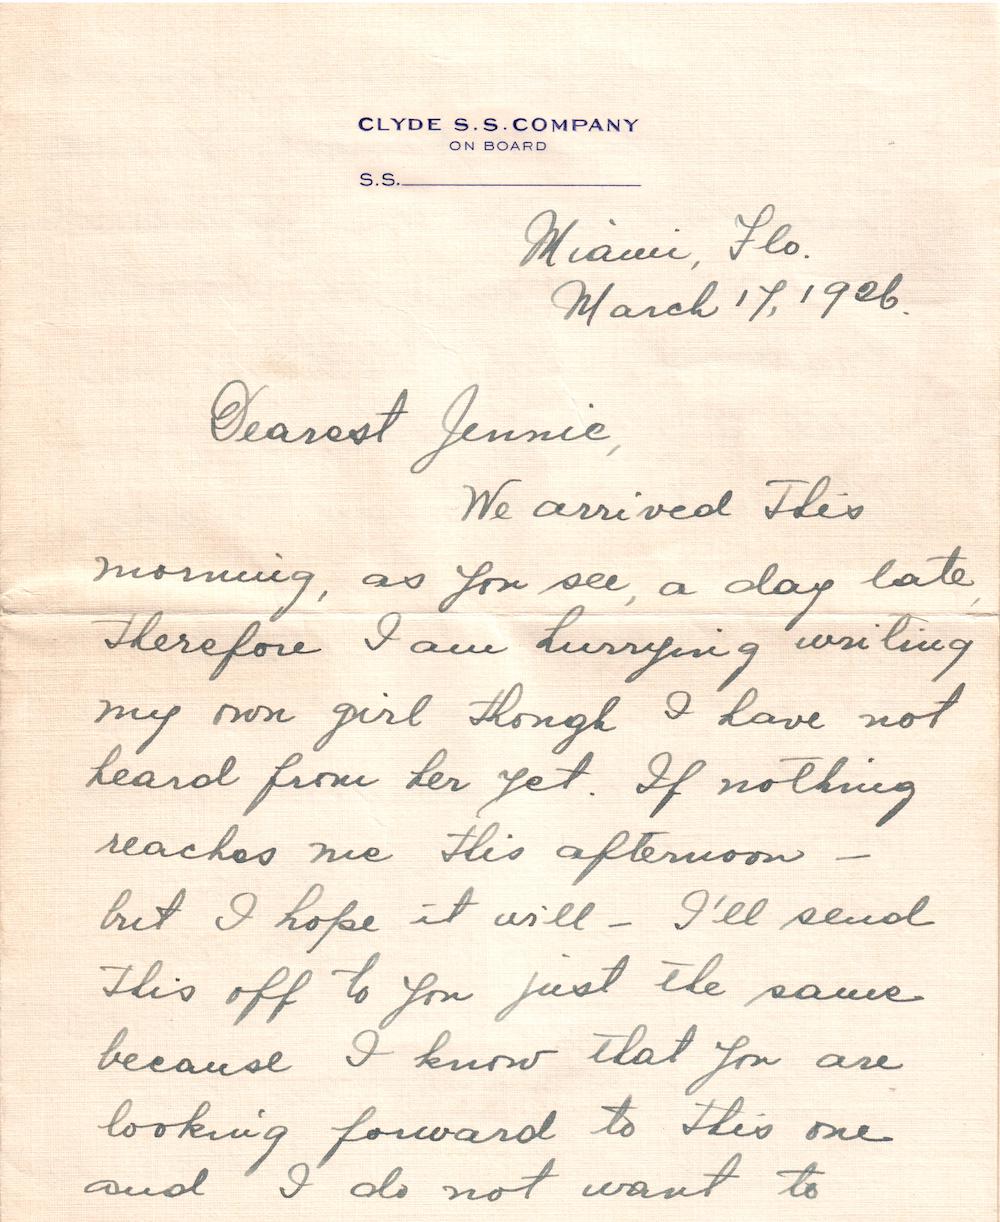 CLYDE S.S. COMPANY
ON BOARD
S.S.
Miami, Flo.
March 17, 1926.
Dearest Jennie,
We arrived this
morning, as you see, a day late,
therefore I am hurrying writing
my own girl though I have not
heard from her yet. If nothing
reaches me this afternoon –
but I hope it will – I'll send
this off to you just the same
because I know that you are
looking forward to this one
and I do not want to